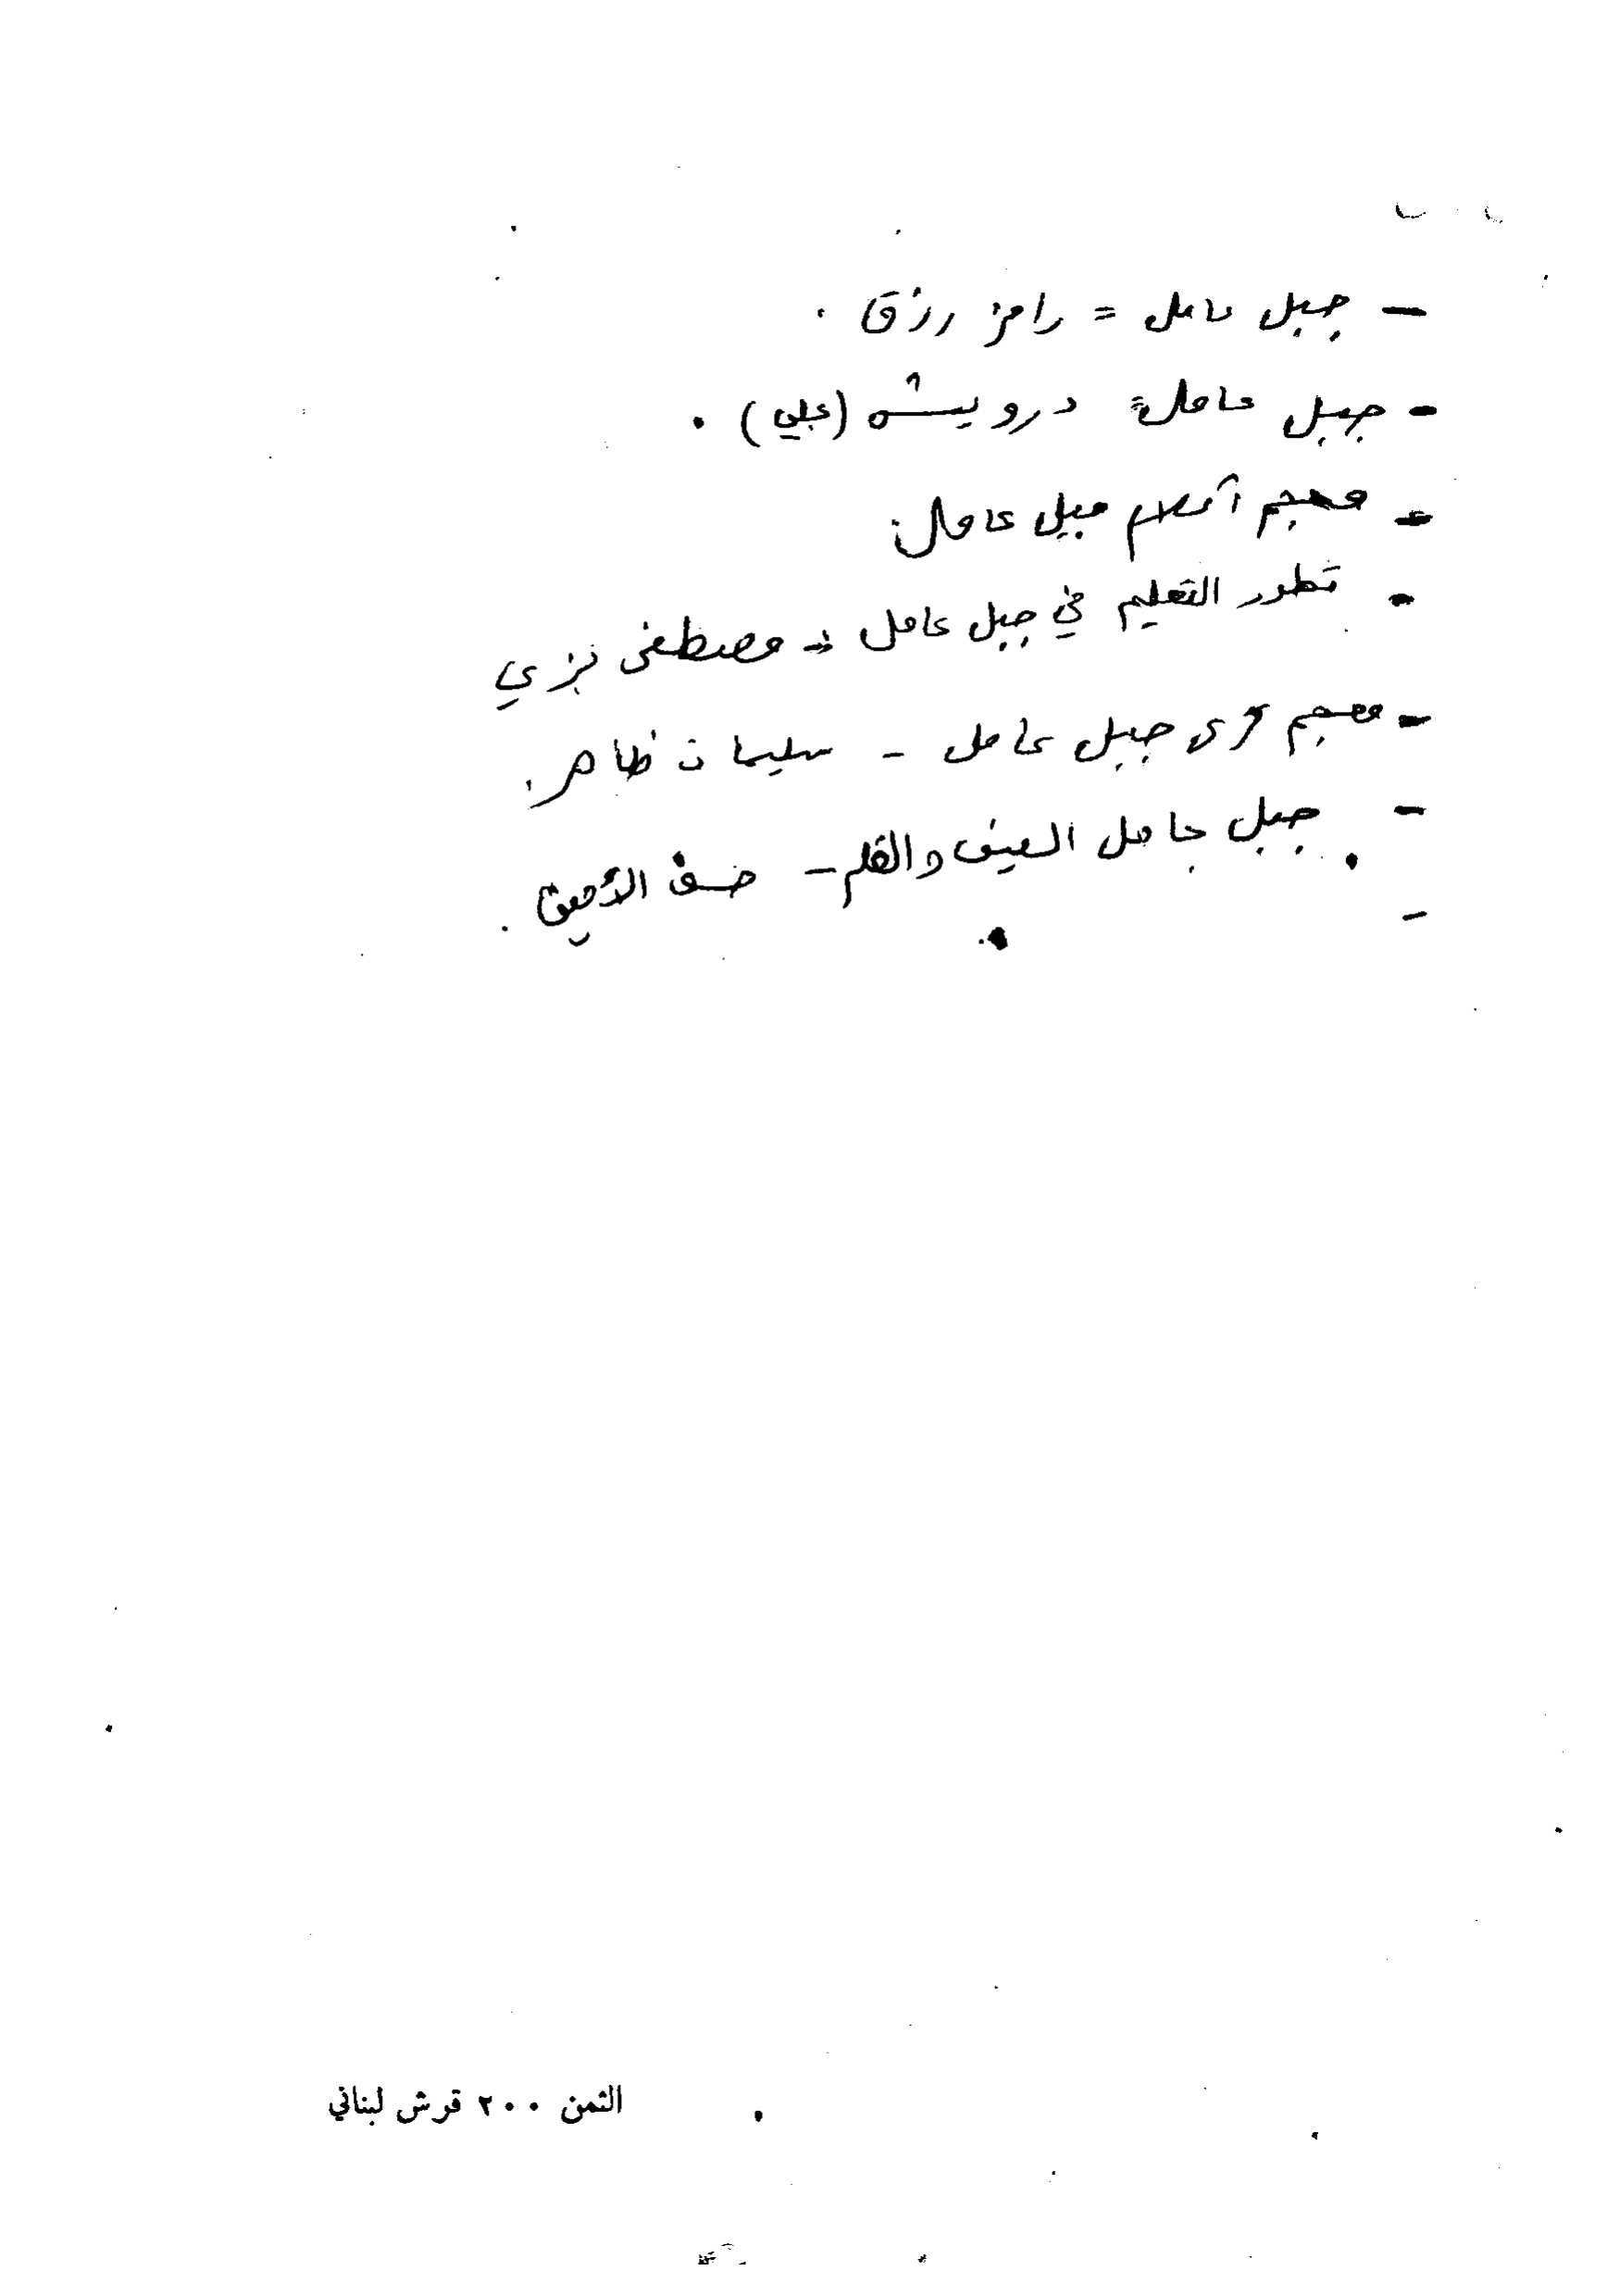 - جبل عامل = رامز رزق .
- جبل عامل = درويش (علي) .
- معجم أعلام جبل عامل .
- تطور التعليم في جبل عامل = مصطفى بزي
- معجم قرى جبل عامل - سليمان ظاهر .
- جبل عامل السيف والقلم - حسن الأمين .
-
الثمن ٢٠٠ قرش لبناني